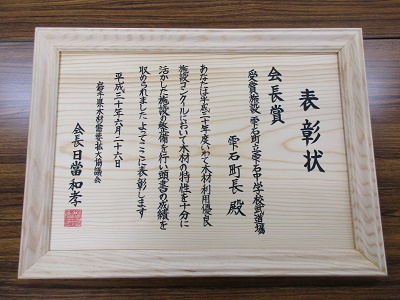 表彰状
会長賞
受賞施設 雫石町立雫石中学校武道場
雫石町長 殿
あなたは平成三十年度いわて木材利用優良
施設コンクールにおいて木材の特性を十分に
活かした施設の整備を行い頭書の成績を
収められましたよってここに表彰します
平成三十年六月二十六日
岩手県木材需要拡大協議会
会長 日當和孝